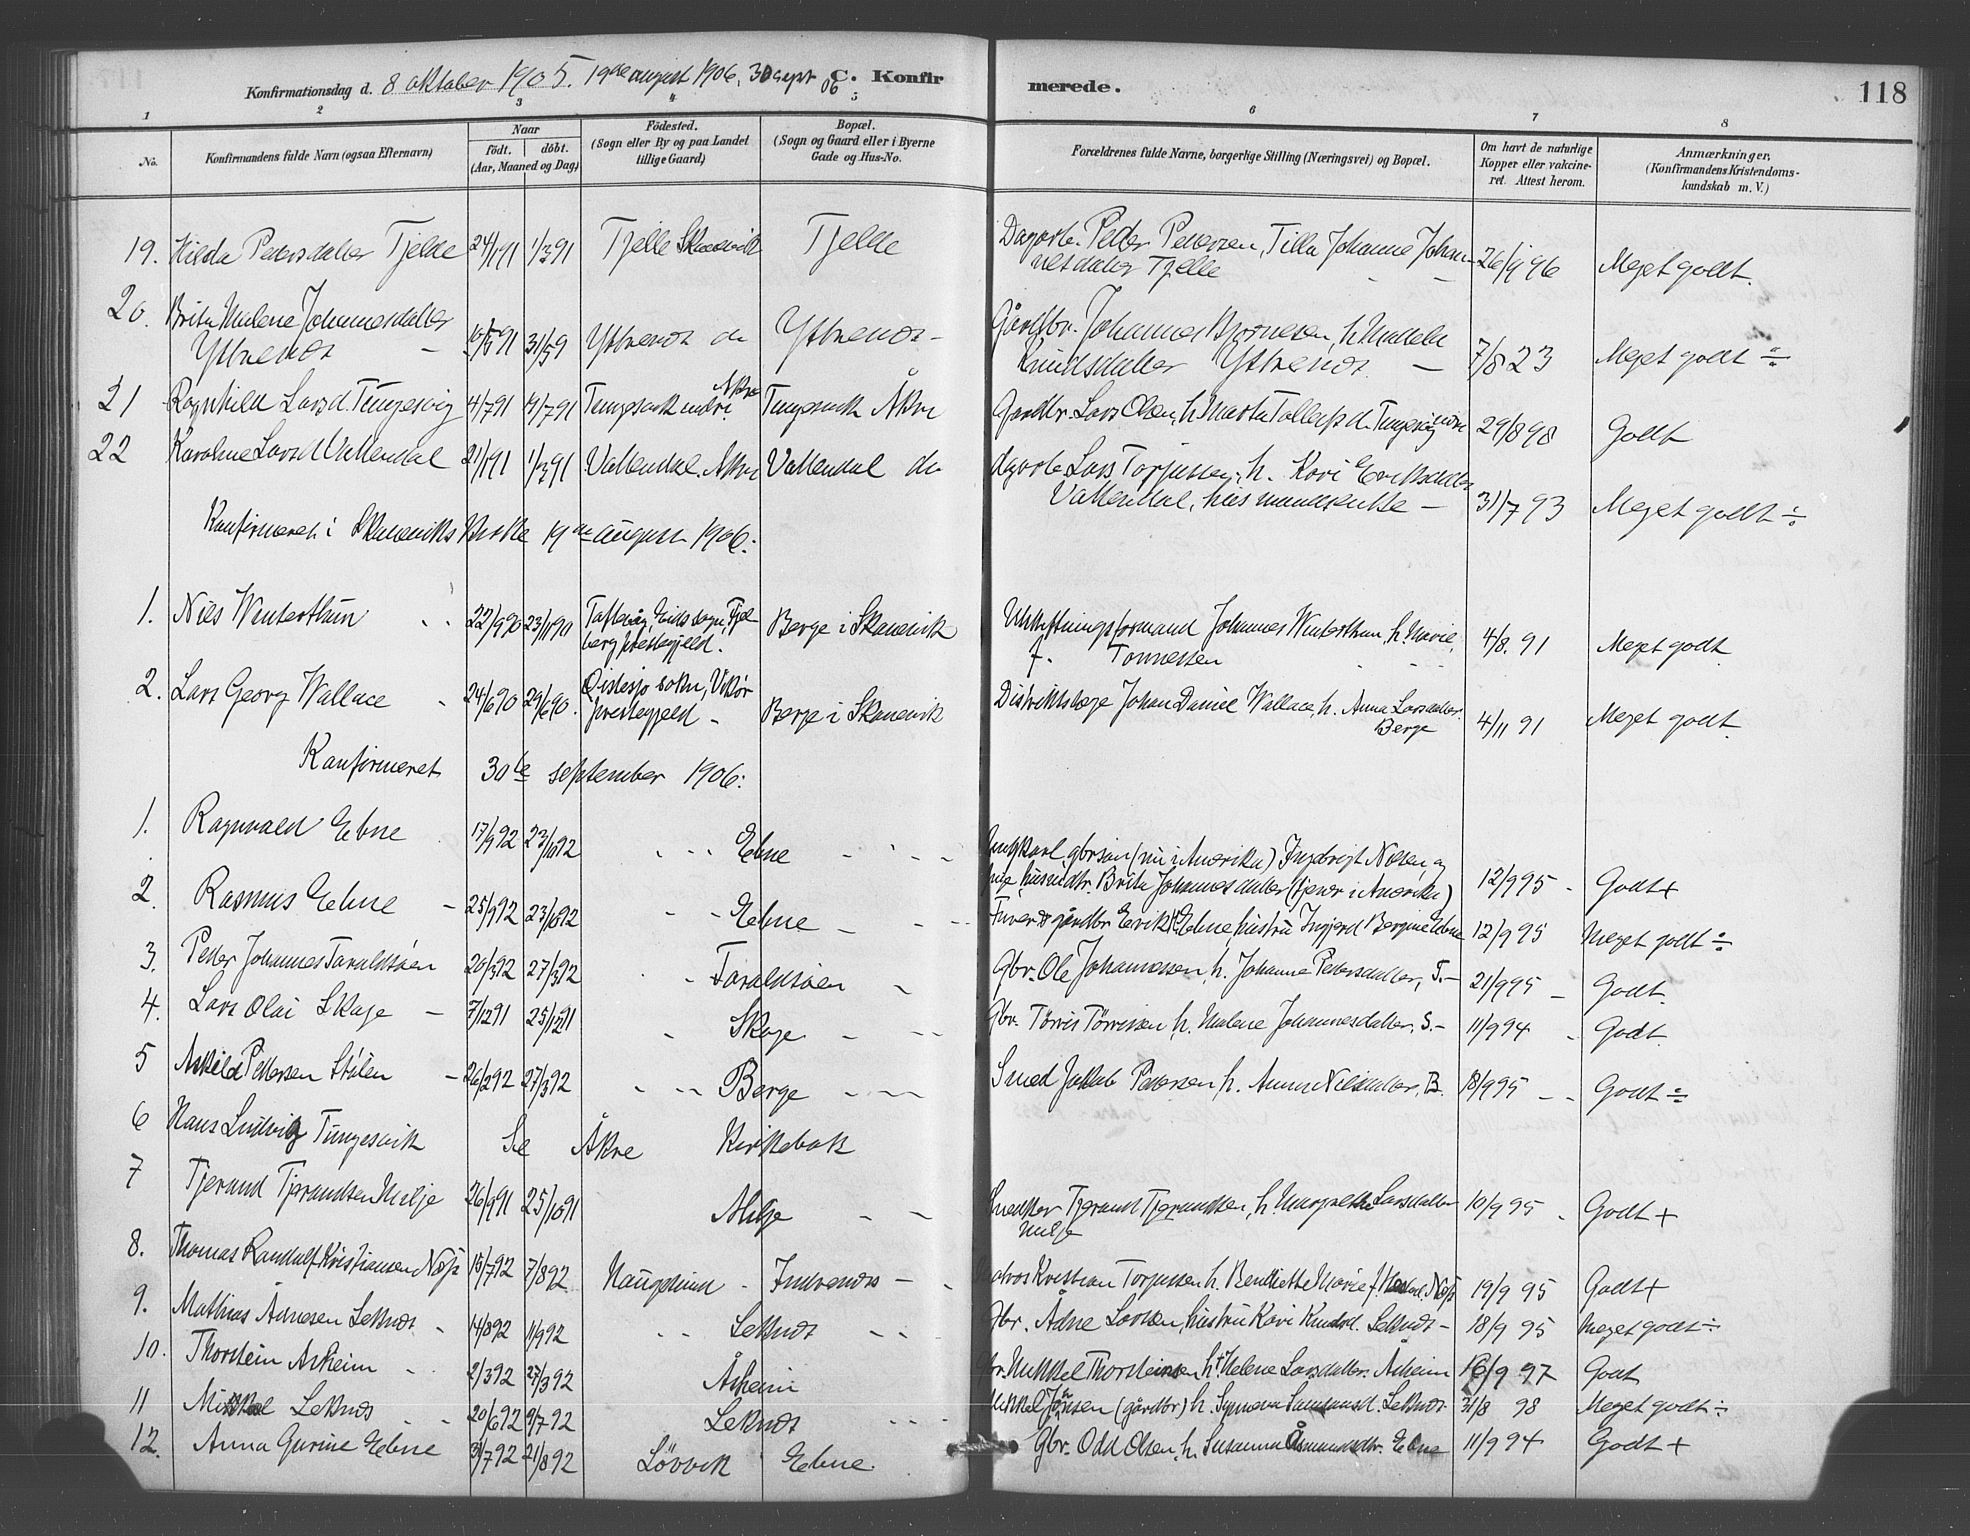 Konfirmationsdag d. 8 oktober 1905. 19de august 1906, 30 sept 06 C. Konfirmerede. 118
1 2 3 4 5 6 7 8
No. Konfirmandens fulde Navn (ogsaa Efternavn) Naar født. døbt. (Aar, Maaned og Dag) Fødested. (Sogn eller By og paa Landet tillige Gaard) Bopæl. (Sogn og Gaard eller i Byerne Gade og Hus-No. Forældrenes fulde Navne, borgerlige Stilling (Næringsvei) og Bopæl. Om havt de naturlige Kopper eller vakcineret. Attest herom. Anmærkninger, (Konfirmandens Kristendomskundskab m. V.)
19. Hilda Pedersdatter Tjelde 24/1 91 1/3 91 Tjelle Skaanevik Tjelle Peder Pedersen, Johanne Johannesdatter Tjelle 26/9 96 Meget godt.
20. Brita Malene Johannesdatter Ytrenæs 31/5 91 Ytrenæs do Ytrenæs - Gårdbr. Johannes Bjørnesen, h. Knudsdatter Ytrenæs - 7/8 23 Meget godt ÷
21 Ragnhild Larsd. Tungesvig 4/7 91 19/7 91 Tungesvik indre Åkre Tungesvik Åkre Gardbr. Lars Olsen, h. Marta Tungesvig indre 29/8 98 Godt
22 Karoline Larsd Vattendal 21/1 91 1/3 91 Vattendal Åkre Vattendal do Lars Torjussen, h. Kari Eriksdatter Vattendal, husmandsenke - 31/7 93 Meget godt ÷
Konfirmeret i Skånevik Kirke 19de august 1906:
1. Nils Winterthun 22/9 90 23/11 90 Eids sogn, Fjelberg prestegjeld. Berge i Skånevik Utskiftningsformand Johannes Winterthun, h. Marie, f. Tønnessen 4/8. 91 Meget godt
2. Lars Georg Wallace - 24/6 90 29/6 90. Østesjo sokn, Vikør prestegjeld - Berge i Skånevik Distriktslæge Johan Daniel Wallace, h. Anna Larsdatter. Berge 4/11 91 Meget godt
Konfirmeret 30te september 1906:
1. Ragnvald Ebne 17/9 92 23/10 92 Ebne (nu i Amerika) Ingebrigt Nilsen og Brita Johannesdatter (tjener i Amerika) 12/9 95 - Godt +
2. Rasmus Ebne - 25/9 92 23/10 92 Ebne - gårdbr Eerik Ebne, hustru Ingjerd Bergine Ebne 12/9 95 Meget godt ÷
3. Peder Johannes Taraldsøen 20/3 92 27/3 92 Taraldsøen Gbr. Ole Johannessen, h. Johanne Pedersdatter, T. - 21/9 95 - Godt.
4. Lars Olai Skage - 7/12 91 25/12 91 Skage Gbr. Tørris Tørrissen, h. Malene Johannesdatter, S. - 11/9 94 - Godt.
5 Askild Pettersen Stølen - 26/2 92 27/3 92 Berge Smed Jakob Petersen, h. Anna Nilsdatter, B. 18/9 95 - - Godt ÷
6 Hans Ludvig Tungesvik Se Åkre Kirkebok
7 Tjerand Tjerandsen Milje 26/9 91 25/10 91 Milje Tjerand Tjerandsen, h. Margrethe Larsdatter Milje 10/9 95 - Godt +
8. Thomas Randulf Kristiansen Næs 15/7 92 7/8 92 Haugesund - Indrenæs - Matros Kristian Torjussen h. Bendikette Marie Næs 19/9 95 Godt +
9. Mathias Ådnesen Leknæs - 14/8 92 11/9 92 Leknæs Gbr. Ådne Larssen, hustru Kari Knudsd. Leknæs - 18/9 95 Meget godt ÷
10. Thorstein Åsheim - 2/3 92 27/3 92 Åsheim Gbr. Mikkel Thorsteinsen h. Helene Larsdatter. Åsheim 16/9 97 Godt
11 Mikkel Leknæs 20/6 92 9/7 92 Leknæs Mikkel (gårdbr) h. Synneva Samsonsd. Leknæs 31/8 98 Meget godt ÷
12. Anna Gurine Ebne 3/7 92 21/8 92 Løvvik Ebne. Gbr. Odd Olsen, h. Susanna Åsmundsdtr. Ebne 11/9 94 Godt +